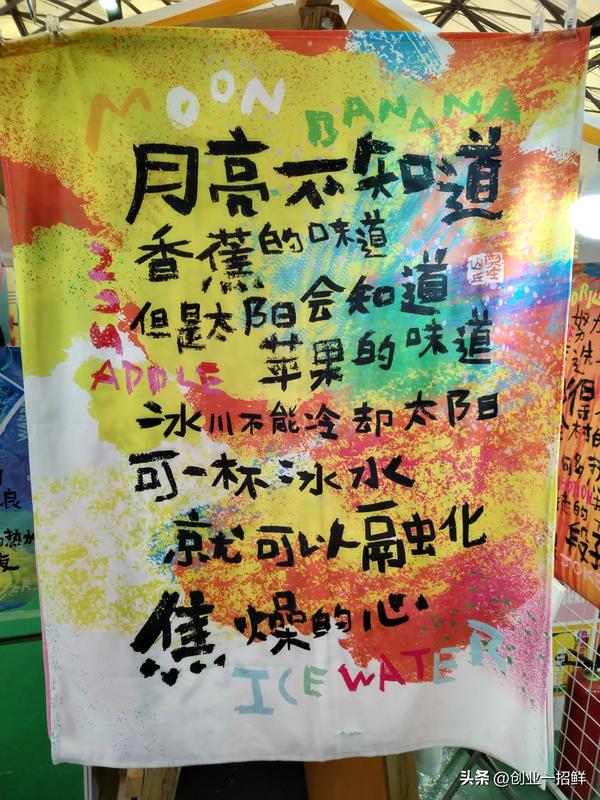 MOON
BANANA
月亮不知道
香蕉的味道
但是太阳会知道
苹果的味道
SUN
APPLE
冰川不能冷却太阳
可一杯冰水
就可以融化
焦燥的心
ICE WATER
努力
的热水
头条 @创业一招鲜